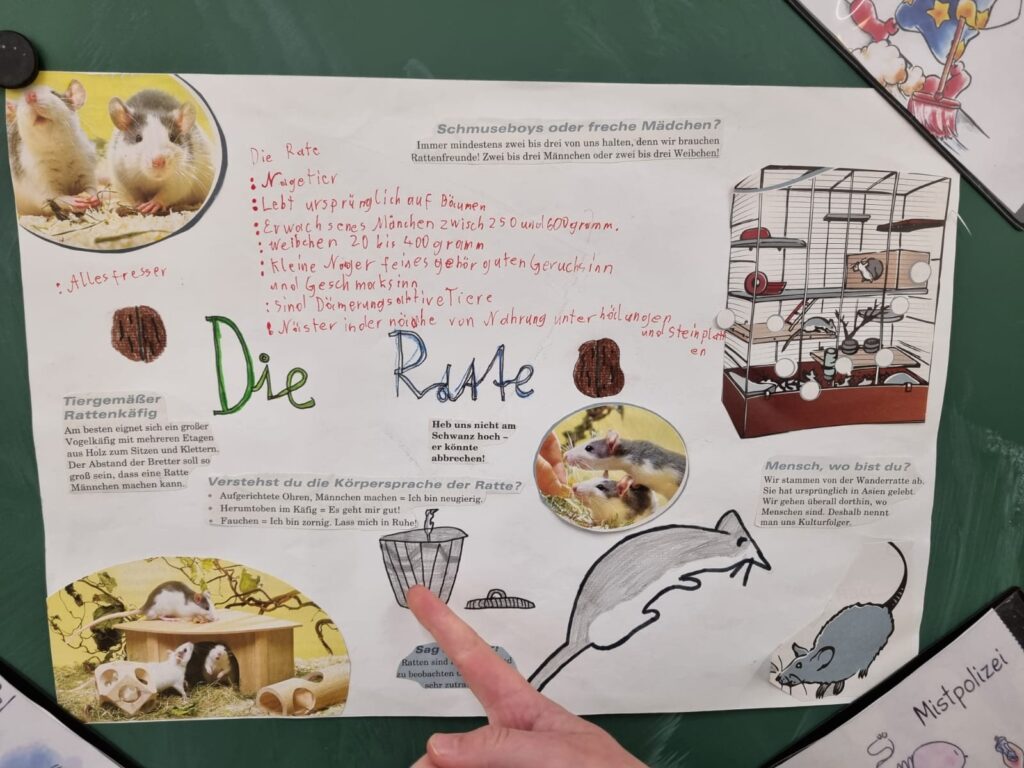 Schmuseboys oder freche Mädchen?
Immer mindestens zwei bis drei von uns halten, denn wir brauchen
Rattenfreunde! Zwei bis drei Männchen oder zwei bis drei Weibchen!
Die Rate
: Nagetier
: Lebt ursprünglich auf Bäumen
: Erwachsenes Mänchen zwisch 250 und 600 gramm.
: Weibchen 20 bis 400 gramm
: Kleine Nager feines gehör guten Geruchsinn
und Geschmaksinn
: Sind Dämerungsaktive Tiere
: Näster in der nöähe von Nahrung unter höilungen
und Steinplatt
en
: Allesfresser
Die Ratte
Tiergemäßer
Rattenkäfig
Am besten eignet sich ein großer
Vogelkäfig mit mehreren Etagen
aus Holz zum Sitzen und Klettern.
Der Abstand der Bretter soll so
groß sein, dass eine Ratte
Männchen machen kann.
Heb uns nicht am
Schwanz hoch –
er könnte
abbrechen!
Verstehst du die Körpersprache der Ratte?
• Aufgerichtete Ohren, Männchen machen = Ich bin neugierig.
• Herumtoben im Käfig = Es geht mir gut!
• Fauchen = Ich bin zornig. Lass mich in Ruhe!
Mensch, wo bist du?
Wir stammen von der Wanderratte ab.
Sie hat ursprünglich in Asien gelebt.
Wir gehen überall dorthin, wo
Menschen sind. Deshalb nennt
man uns Kulturfolger.
Sag
Ratten sind
zu beobachten
sehr zutra
Mistpolizei